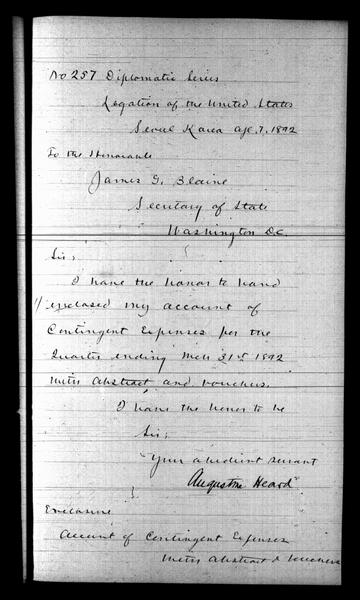 No 257 Diplomatic Series
Legation of the United States
Seoul Korea Apl. 7, 1892
To the Honorable
James G. Blaine
Secretary of State
Washington D.C.
Sir;
I have the honor to hand
1/ enclosed my account of
Contingent Expenses for the
Quarter ending Mch 31st 1892
with Abstract and vouchers.
I have the honor to be
Sir;
Your obedient servant
Augustine Heard
Enclosure
Account of Contingent Expenses
with Abstract & vouchers